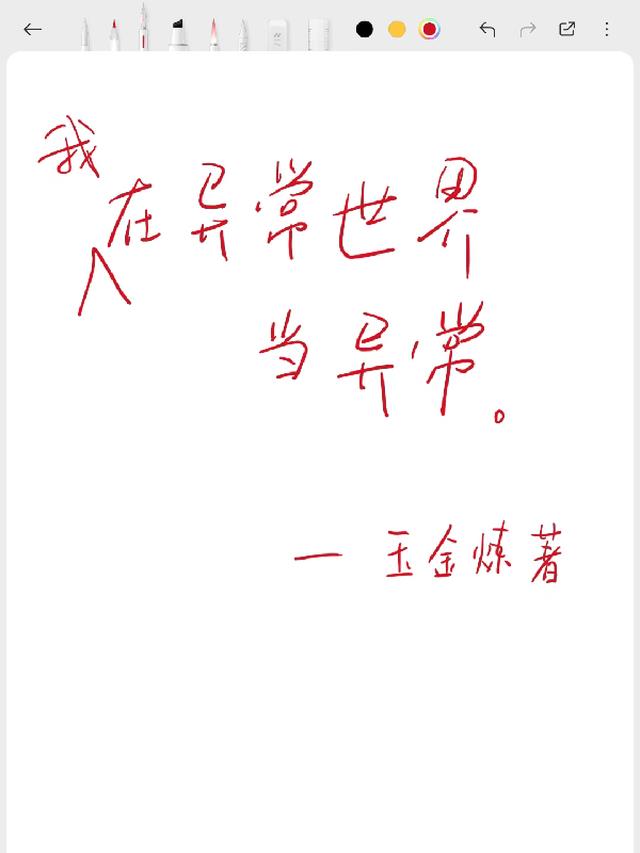 我在异常世界
当异常。
— 玉金炼著